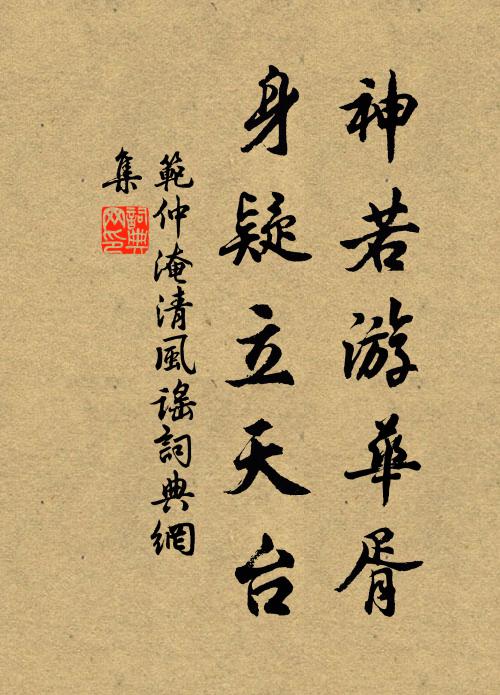 神若游華胥
身疑立天台
範仲淹清風謠詞典網
集
詞典網印